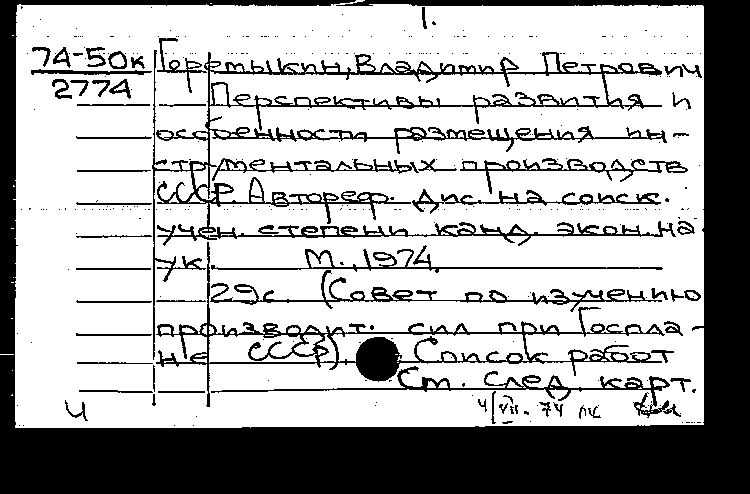 1.
74-50к Горемыкин, Владимир Петрович
2774 Перспективы развития и
особенности размещения ин-
струментальных производств
СССР. Автореф. дис. на соиск.
учен. степени канд. экон. на-
ук. М., 1974.
29с. (Совет по изучению
производит. сил при Госпла-
не СССР). Список работ
См. след. карт.
ч 4/VII. 74 лк